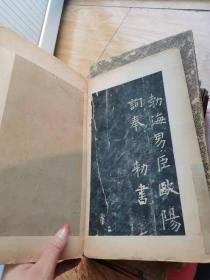 渤海男臣歐陽
詢奉 勅書